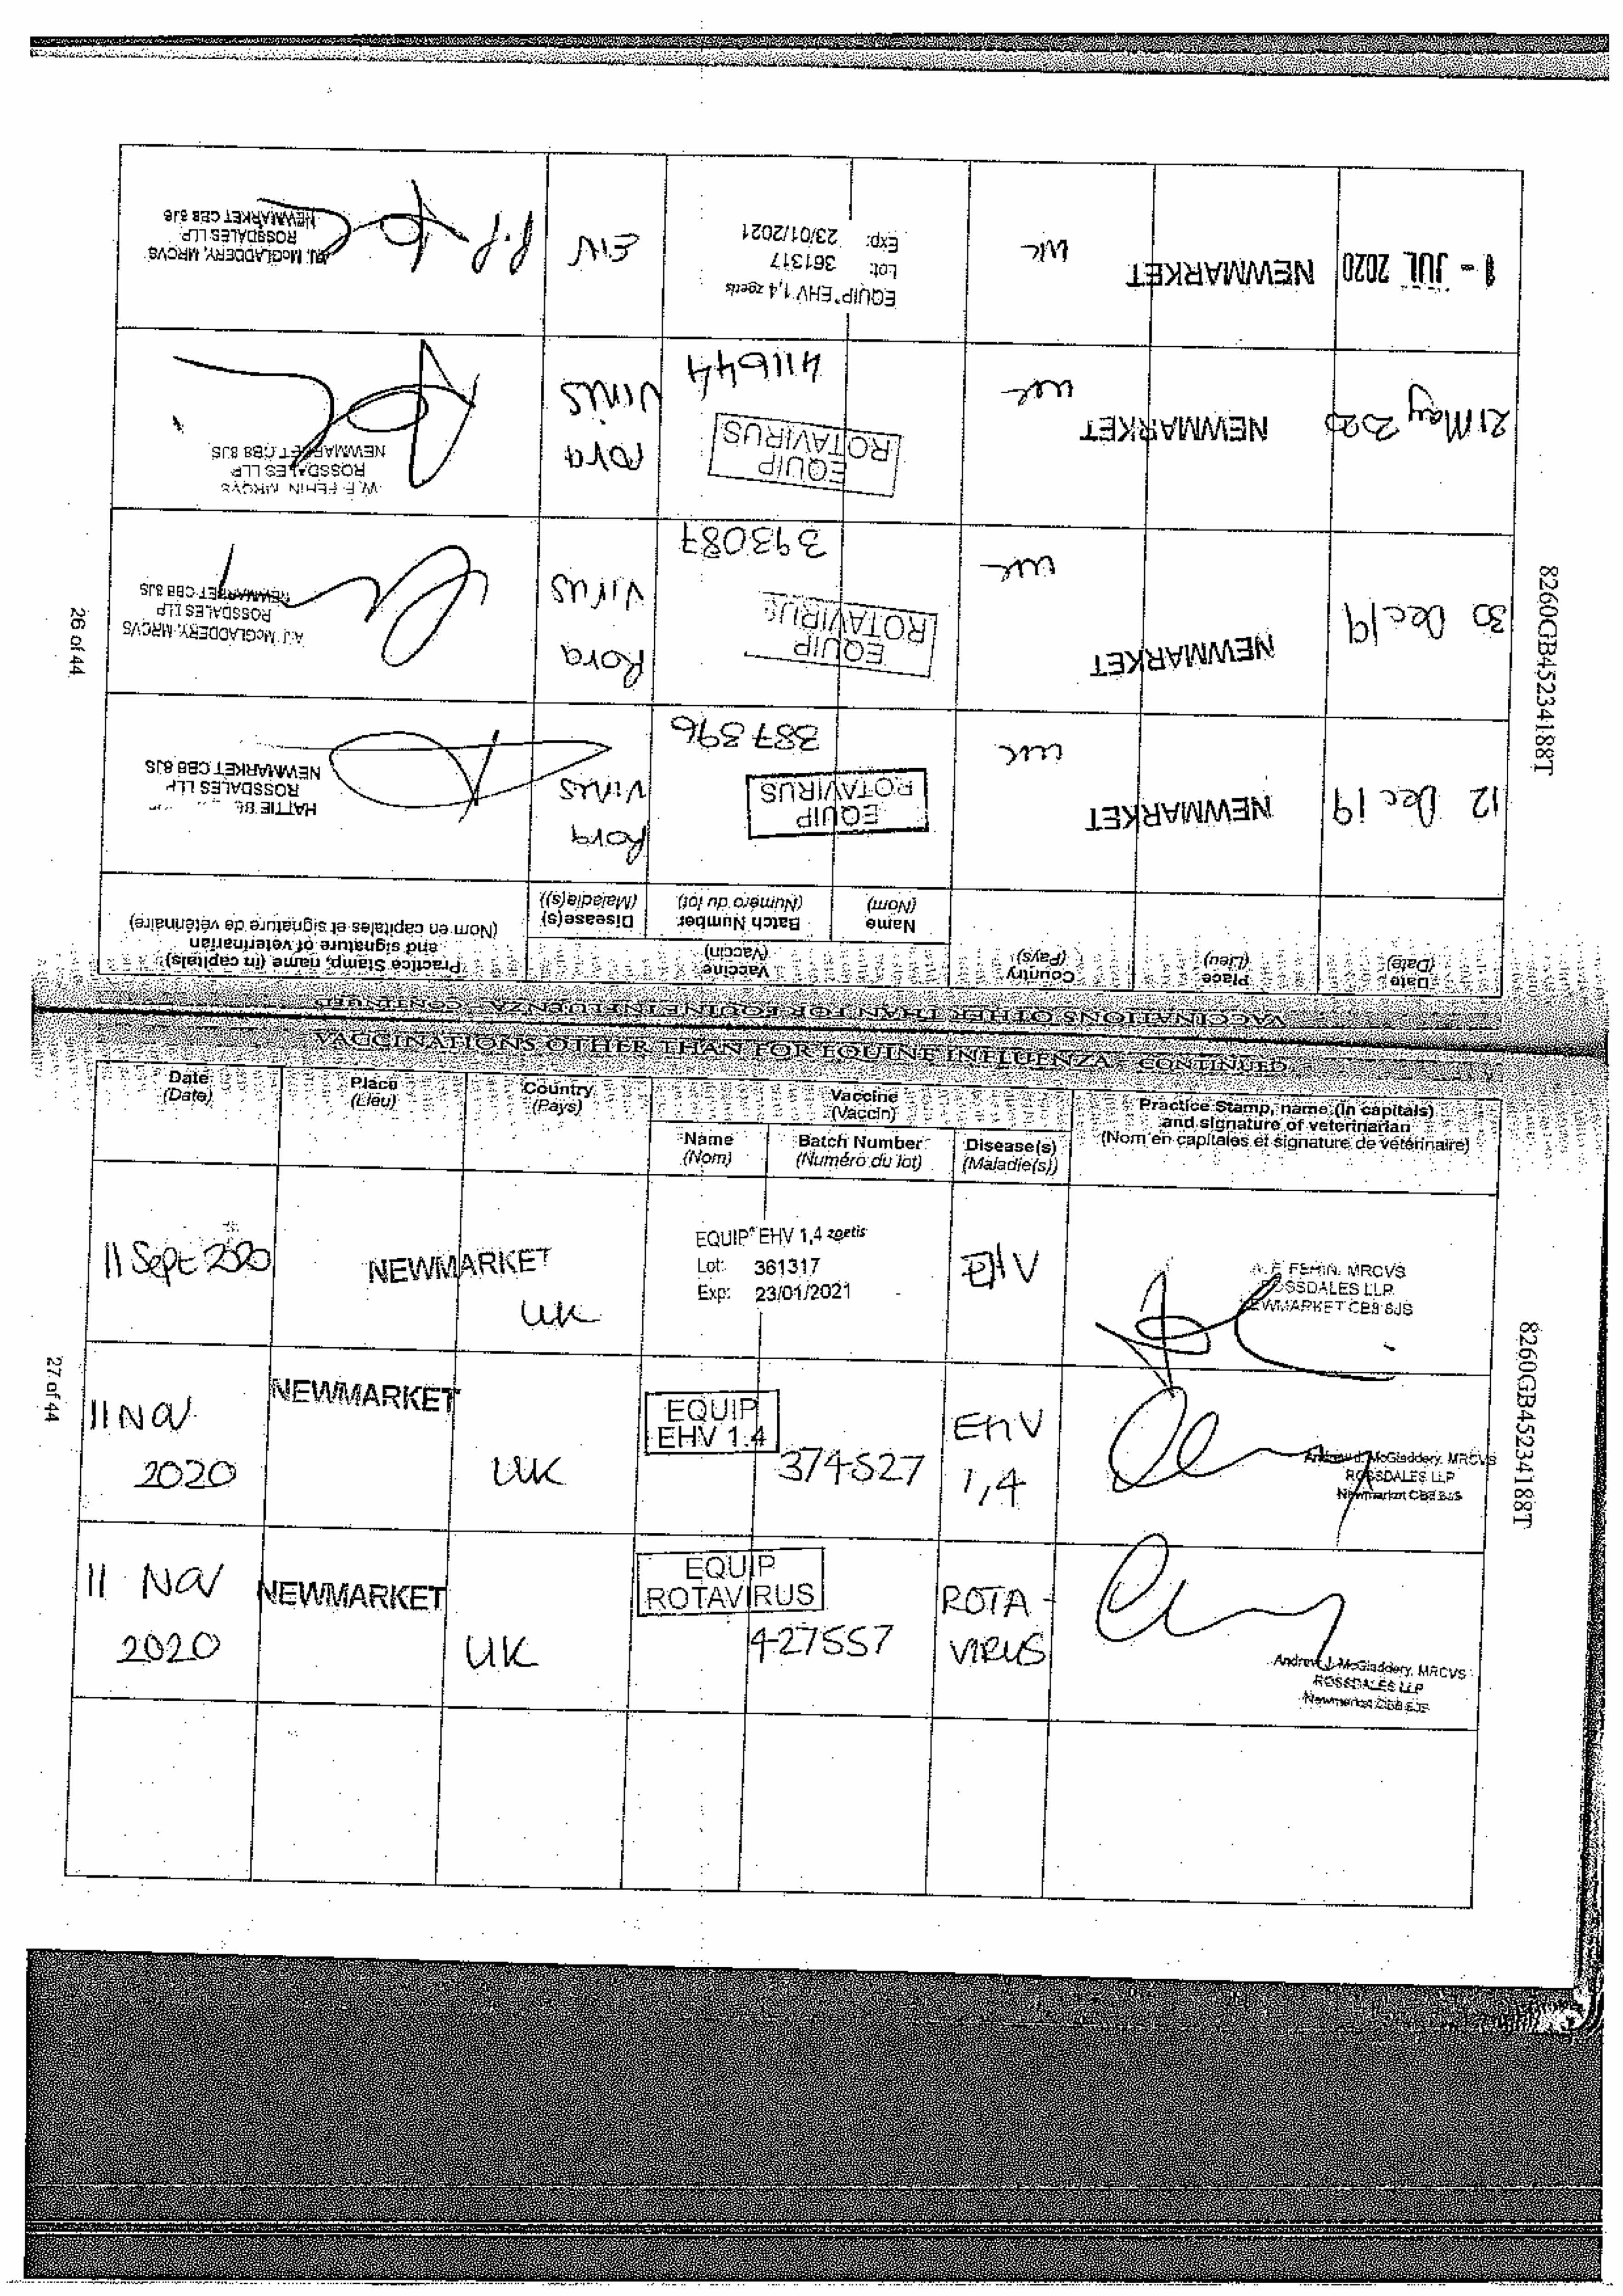 VACCINATIONS OTHER THAN FOR EQUINE INFLUENZA - CONTINUED
Date
(Date)
Place
(Lieu)
Country
(Pays)
Vaccine
(Vaccin)
Name
(Nom)
Batch Number
(Numéro du lot)
Disease(s)
(Maladie(s))
Practice Stamp, name (in capitals)
and signature of veterinarian
(Nom en capitales et signature de vétérinaire)
12 Dec 19
NEWMARKET
UK
EQUIP
ROTAVIRUS
387396
Rota
Virus
HATTIE
ROSSDALES LLP
NEWMARKET CB8 8JS
30 Dec 19
NEWMARKET
UK
EQUIP
ROTAVIRUS
393087
Rota
Virus
A.J. McGLADDERY, MRCVS
ROSSDALES LLP
NEWMARKET CB8 8JS
21 May 2020
NEWMARKET
UK
EQUIP
ROTAVIRUS
411644
rota
virus
FEHIN MRCVS
ROSSDALES LLP
NEWMARKET CB8 8JS
1 - JUL 2020
NEWMARKET
UK
EQUIP® EHV 1,4 zoetis
Lot: 361317
Exp: 23/01/2021
P.P
A.J. McGLADDERY, MRCVS
ROSSDALES LLP
NEWMARKET CB8 8JS
26 of 44
8260GB45234188T
VACCINATIONS OTHER THAN FOR EQUINE INFLUENZA - CONTINUED
Date
(Date)
Place
(Lieu)
Country
(Pays)
Vaccine
(Vaccin)
Name
(Nom)
Batch Number
(Numéro du lot)
Disease(s)
(Maladie(s))
Practice Stamp, name (in capitals)
and signature of veterinarian
(Nom en capitales et signature de vétérinaire)
11 Sept 2020
NEWMARKET
UK
EQUIP® EHV 1,4 zoetis
Lot: 361317
Exp: 23/01/2021
EHV
FEHIN. MRCVS
ROSSDALES LLP
NEWMARKET CB8 8JS
11 Nov
2020
NEWMARKET
UK
EQUIP
EHV 1.4
374527
EHV
1,4
Andrew J. McGladdery, MRCVS
ROSSDALES LLP
Newmarket CB8 8JS
11 Nov
2020
NEWMARKET
UK
EQUIP
ROTAVIRUS
427557
ROTA -
VIRUS
Andrew J. McGladdery, MRCVS
ROSSDALES LLP
Newmarket CB8 8JS
27 of 44
8260GB45234188T